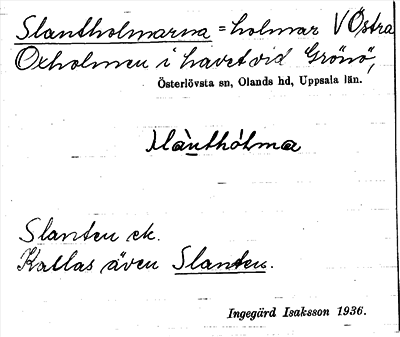 Slantholmarna = holmar V Östra
Oxholmen i havet vid Grönö,
Österlövsta sn, Olands hd, Uppsala län.
slànthólma
Slanten ek.
Kallas även Slanten.
Ingegärd Isaksson 1936.